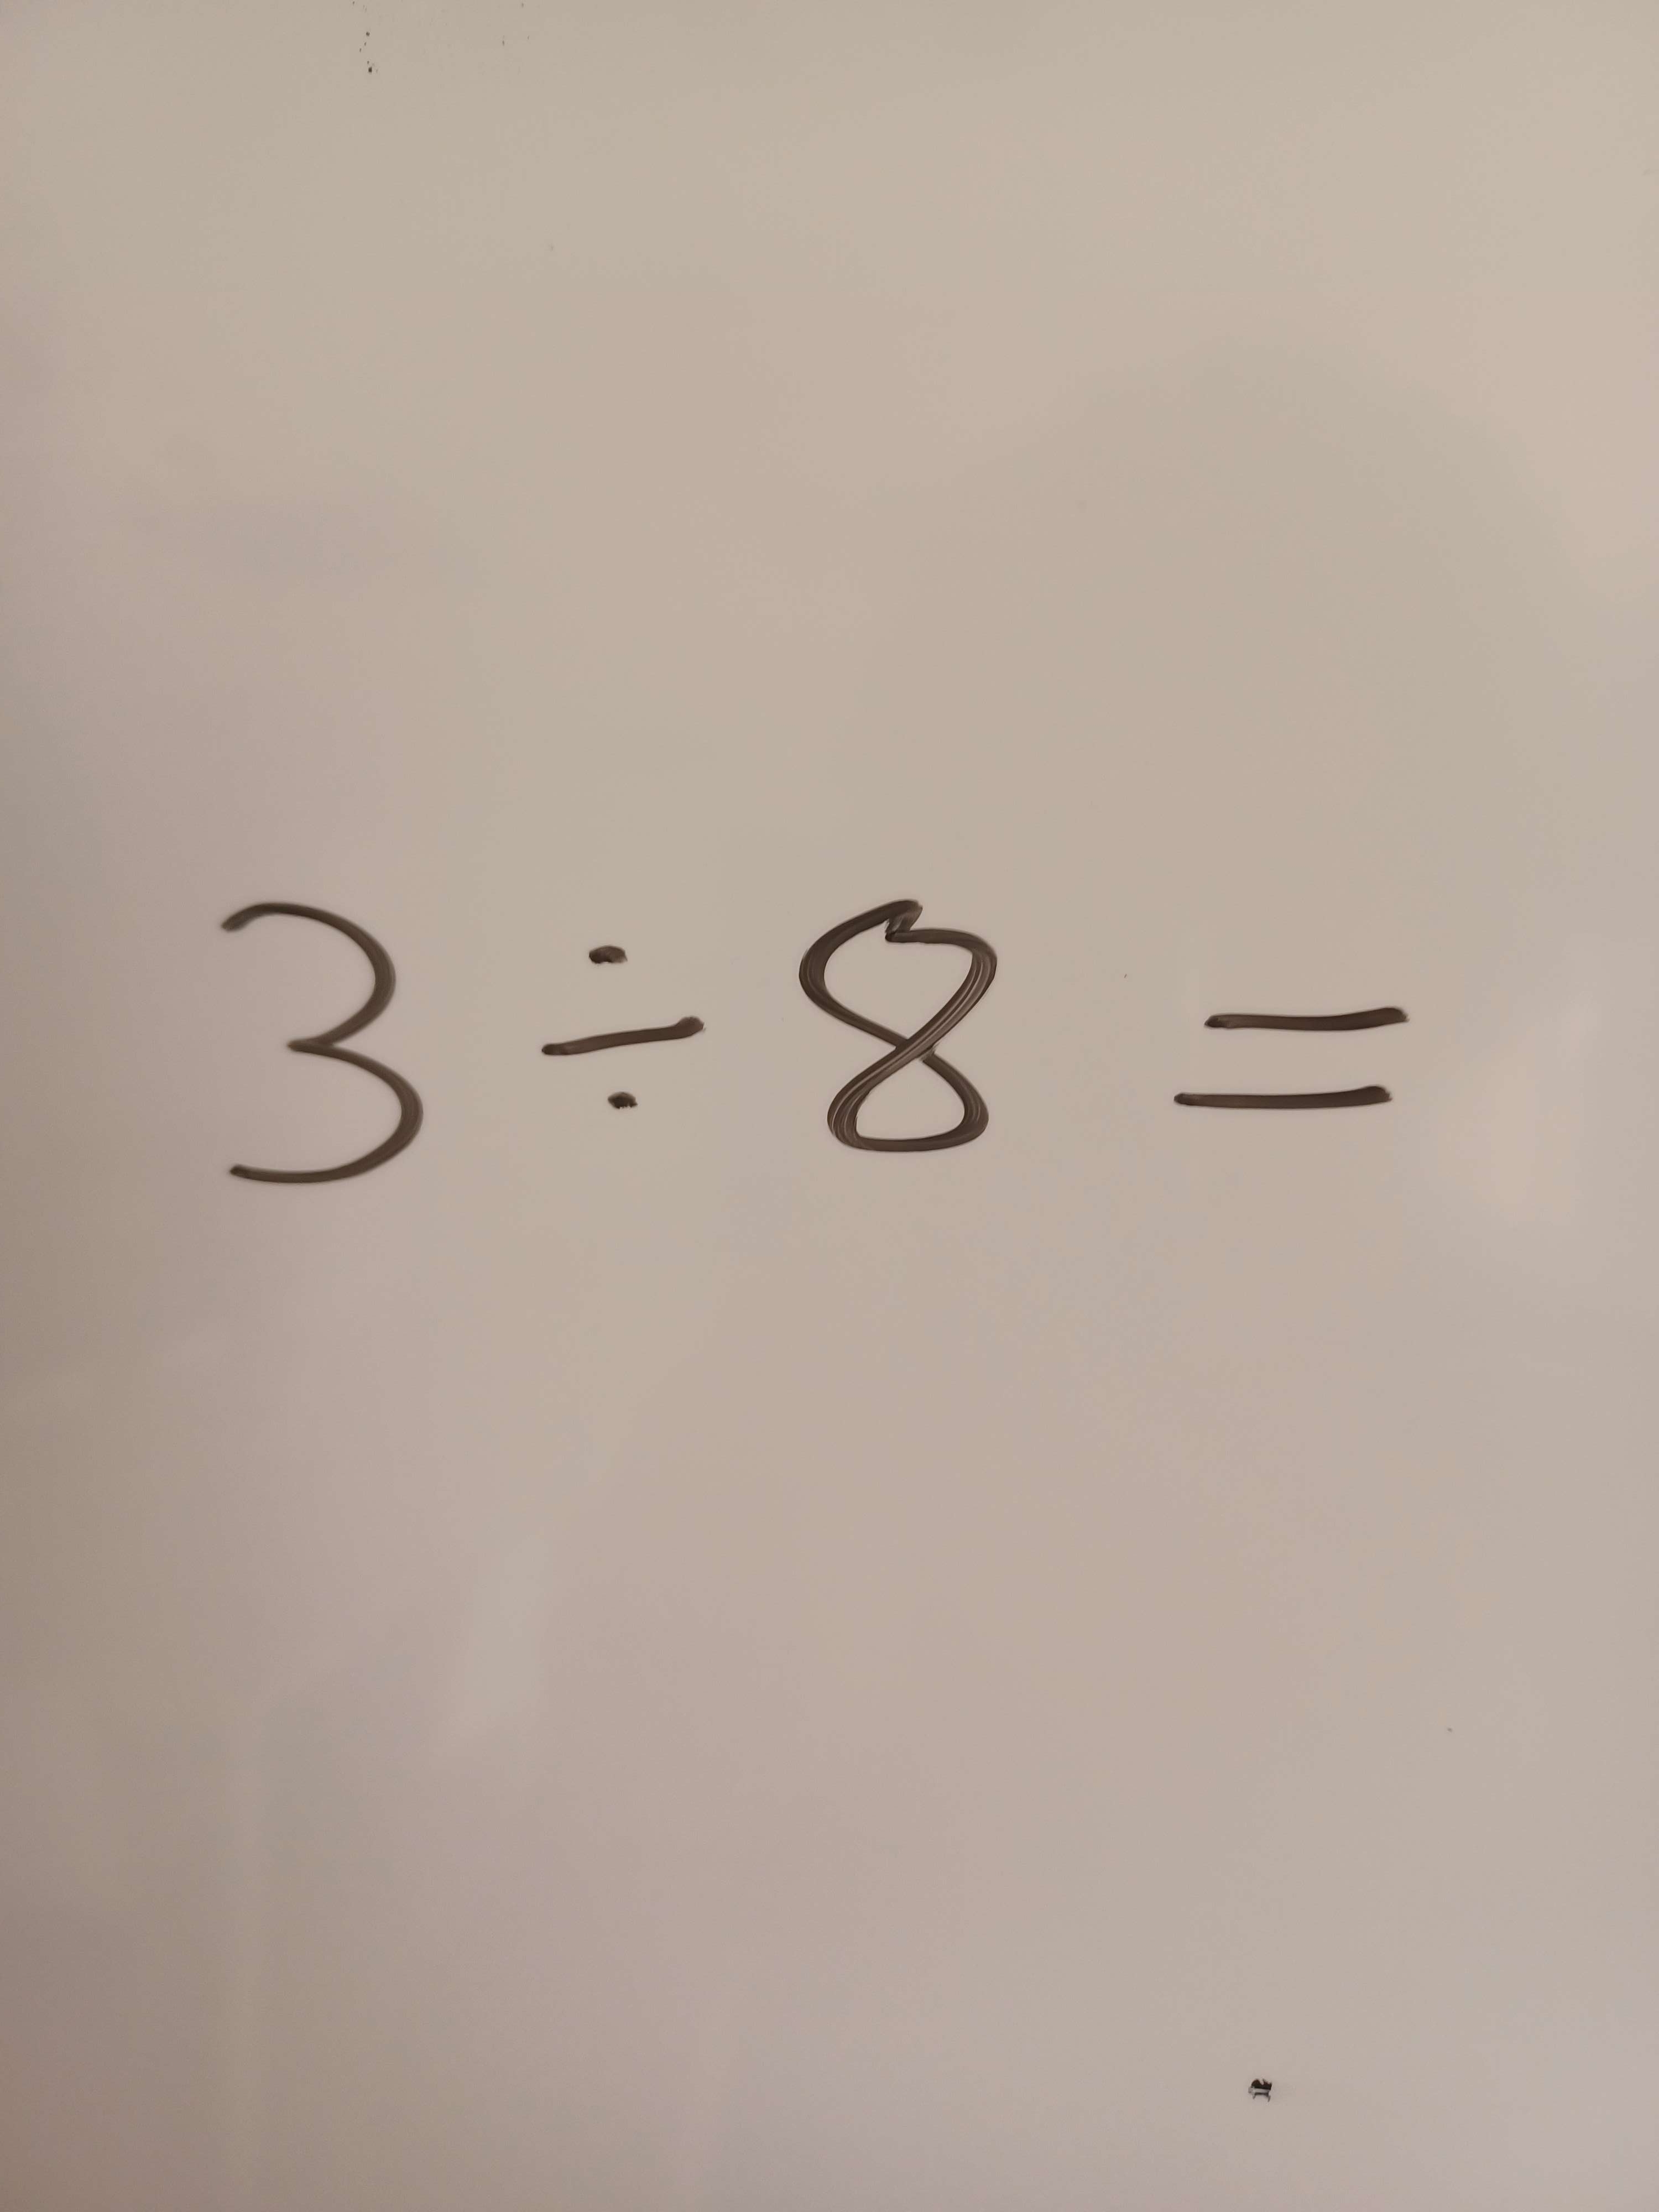 3 ÷ 8 =